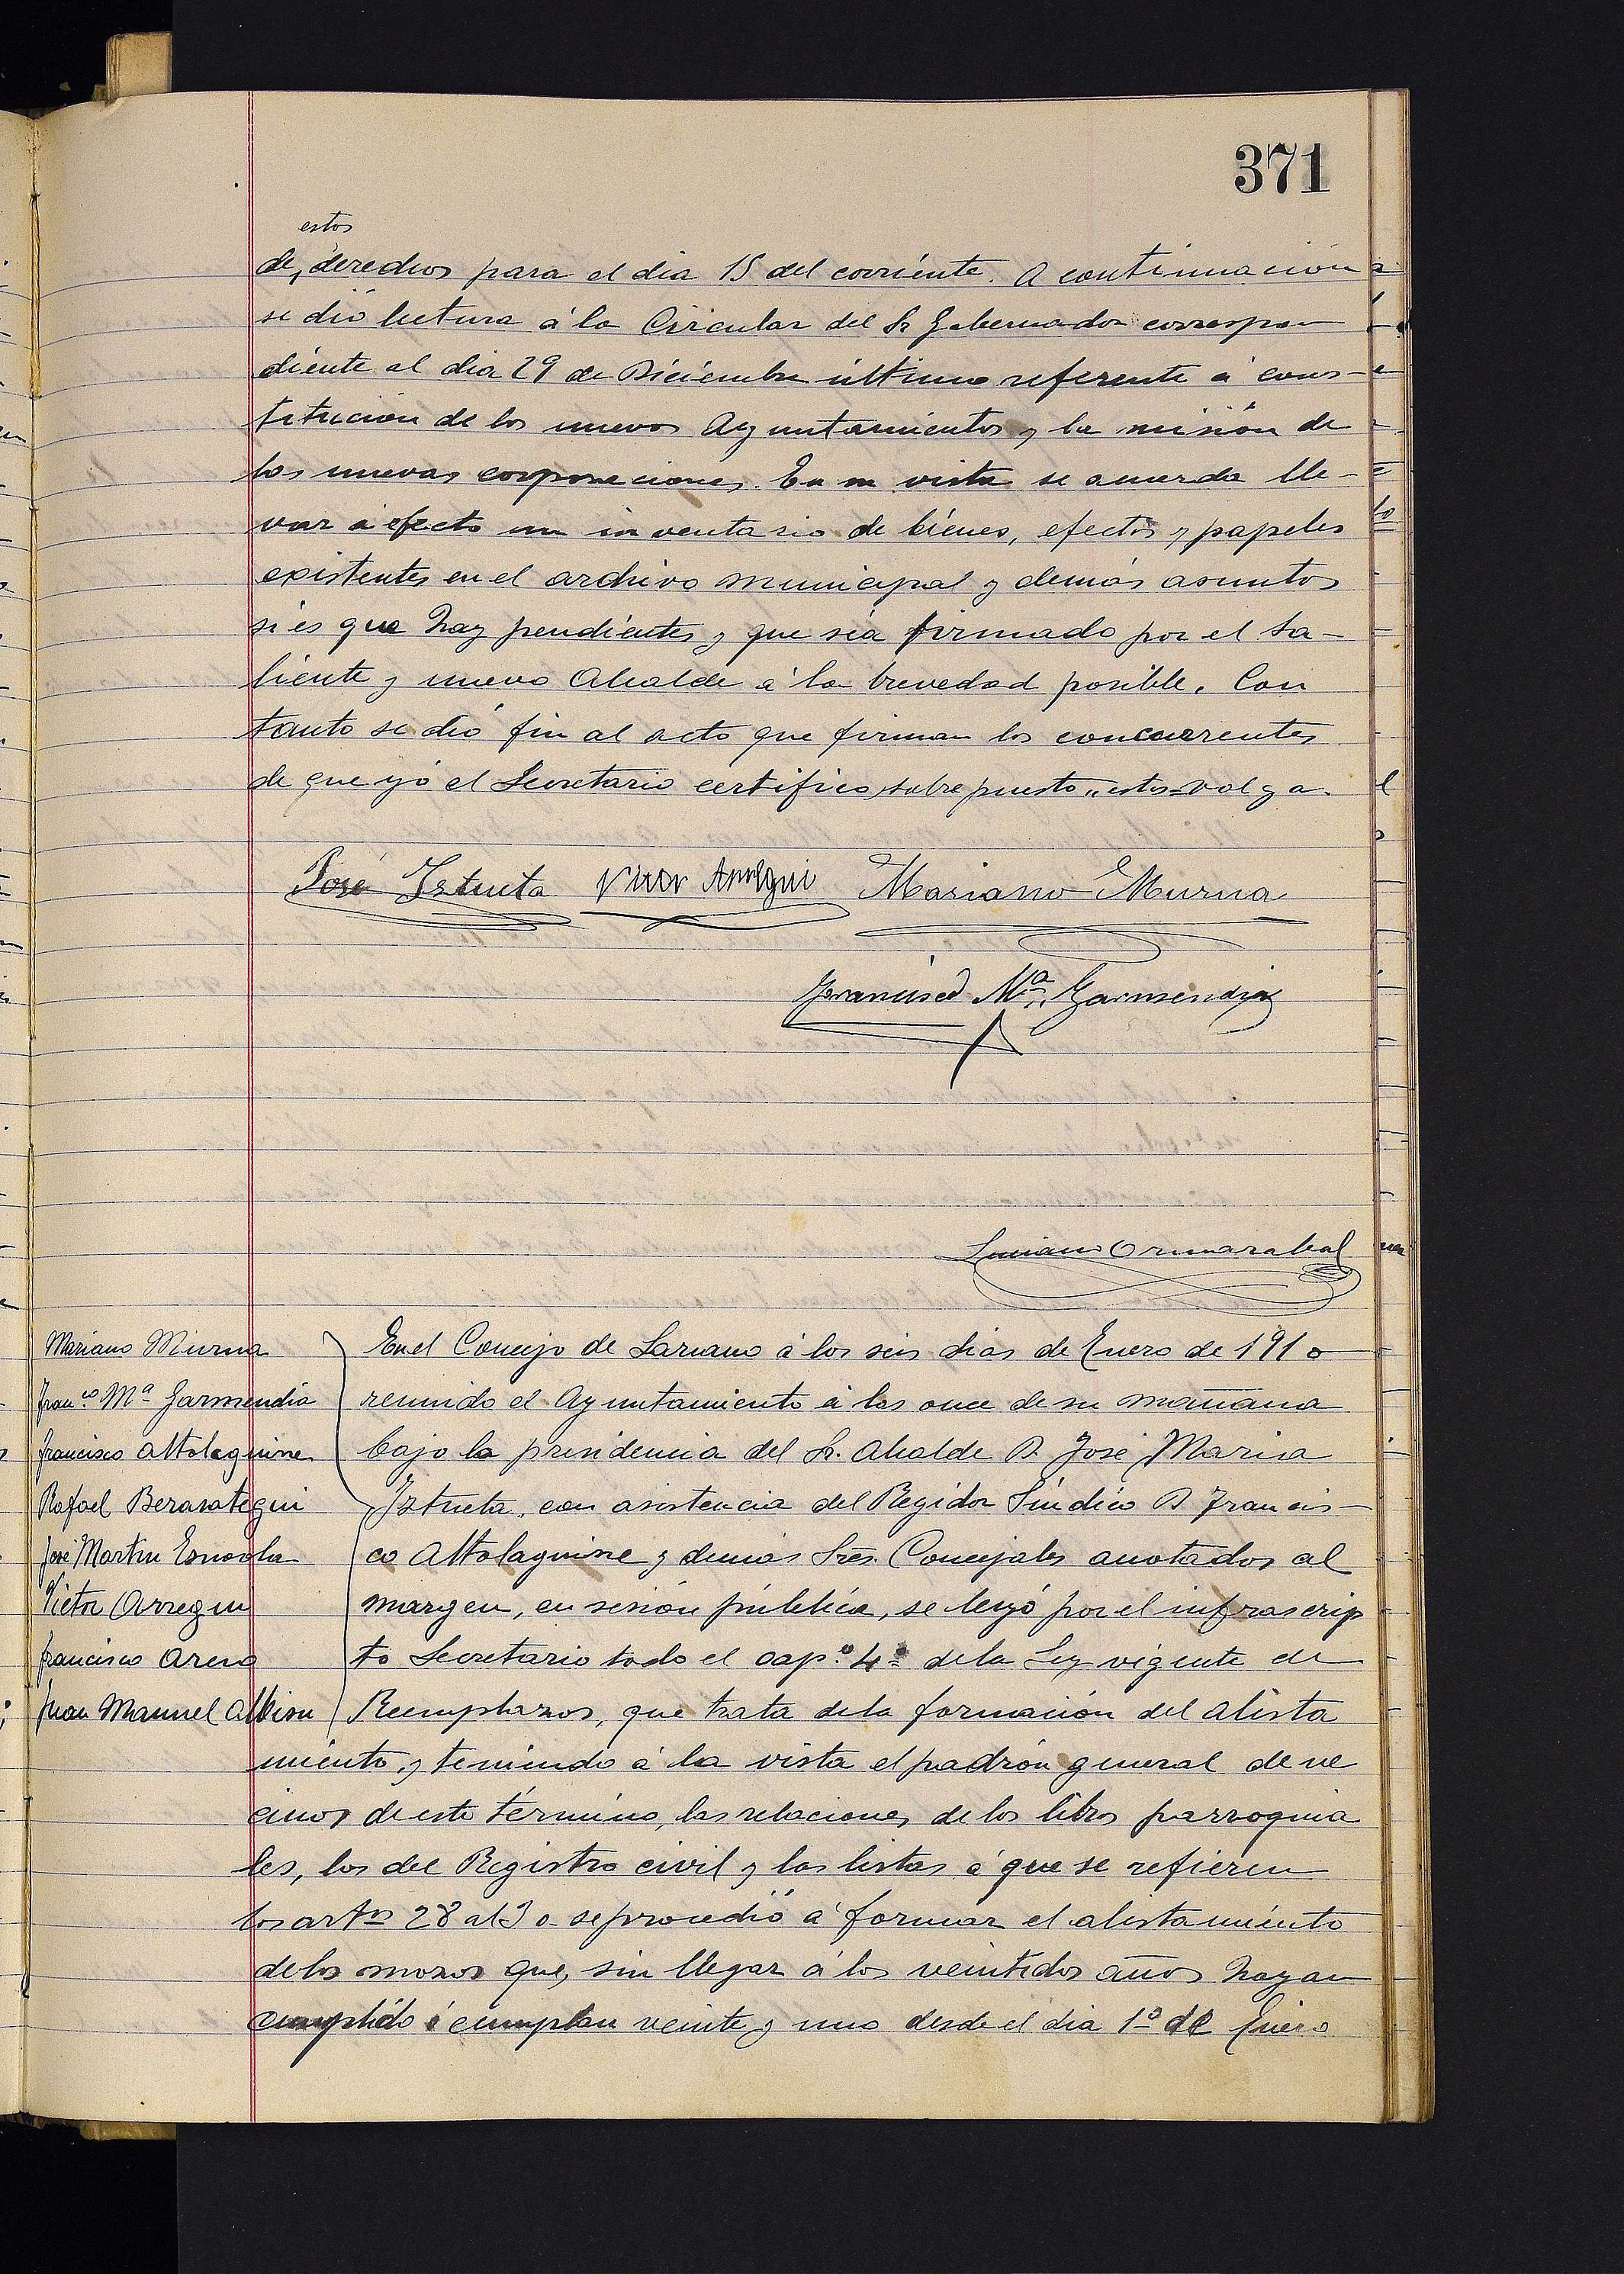 371
estos
de, derechos para el dia 15 del corriente. A continuación
se dió lectura á la Circular del Sr Gobernador correspon
diente al dia 29 de Diciembre último referente á cons-
titución de los nuevos Ayuntamientos y la misión de
las nuevas corporaciones. En su vista se acuerda lle-
var a efecto un inventario de bienes, efectos y papeles
existentes en el archivo municipal y demás asuntos
si es que hay pendientes y que sea firmado por el sa-
liente y nuevo Alcalde á la brevedad posible. Con
tanto se dió fin al acto que firman los concurrentes
de que yó el Secretario certifico, sobre puesto "estos=valga.
José Iztueta Victor Arregui Mariano Murua
Francisco Mª Garmendia
Luciano Ormazabal
Mariano Murua
Franco Mª Garmendia
Francisco Altolaguirre
Rafael Berasategui
José Martin Esnaola
Victor Arregui
Francisco Areno
Juan Manuel Albisu
En el Concejo de Lazcano á los seis dias de Enero de 1910
reunido el Ayuntamiento á las once de su mañana
bajo la presidencia del Sr. Alcalde D. José Maria
Iztueta, con asistencia del Regidor Síndico D. Francis-
co Altolaguirre y demás Sres. Concejales anotados al
margen, en sesión pública, se leyó por el infrascrip
to Secretario todo el capº 4º de la Ley vigente de
Reemplazos, que trata de la formación del alista
miento, y teniendo á la vista el padrón general de ve
cinos de este término, las relaciones de los libros parroquia
les, los del Registro civil y las listas á que se refieren
los artos 28 al 30 se procedió á formar el alistamiento
de los mozos que, sin llegar á los veintidos años hayan
cumplido ó cumplan veinte y uno desde el dia 1º de Enero